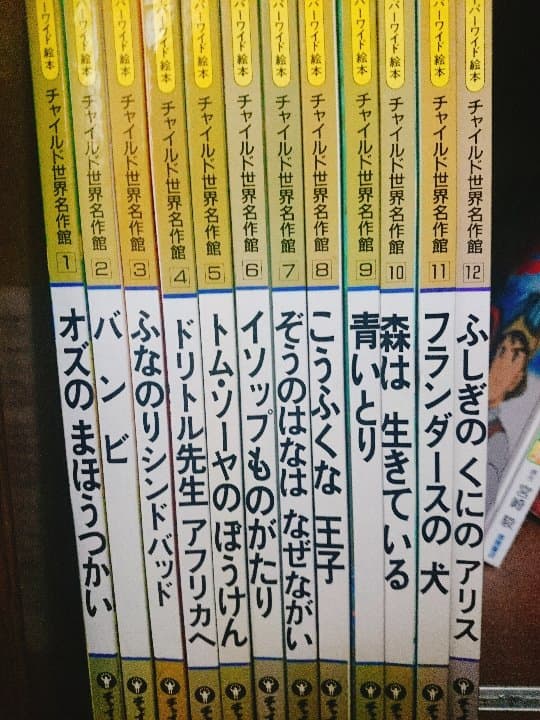 パーワイド絵本
チャイルド世界名作館
1
オズの まほうつかい
パーワイド絵本
チャイルド世界名作館
2
バンビ
パーワイド絵本
チャイルド世界名作館
3
ふなのりシンドバッド
パーワイド絵本
チャイルド世界名作館
4
ドリトル先生 アフリカへ
パーワイド絵本
チャイルド世界名作館
5
トム・ソーヤのぼうけん
パーワイド絵本
チャイルド世界名作館
6
イソップものがたり
パーワイド絵本
チャイルド世界名作館
7
ぞうのはなは なぜながい
パーワイド絵本
チャイルド世界名作館
8
こうふくな 王子
パーワイド絵本
チャイルド世界名作館
9
青いとり
パーワイド絵本
チャイルド世界名作館
10
森は 生きている
パーワイド絵本
チャイルド世界名作館
11
フランダースの 犬
パーワイド絵本
チャイルド世界名作館
12
ふしぎの くにの アリス